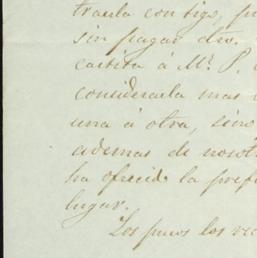 traerla contigo, pu
sin pagar dro.
cartita á Mr. P.
considerarla mas
una á otra, sino
ademas de nosot
ha ofrecido la pref
lugar.
Los puros los rec